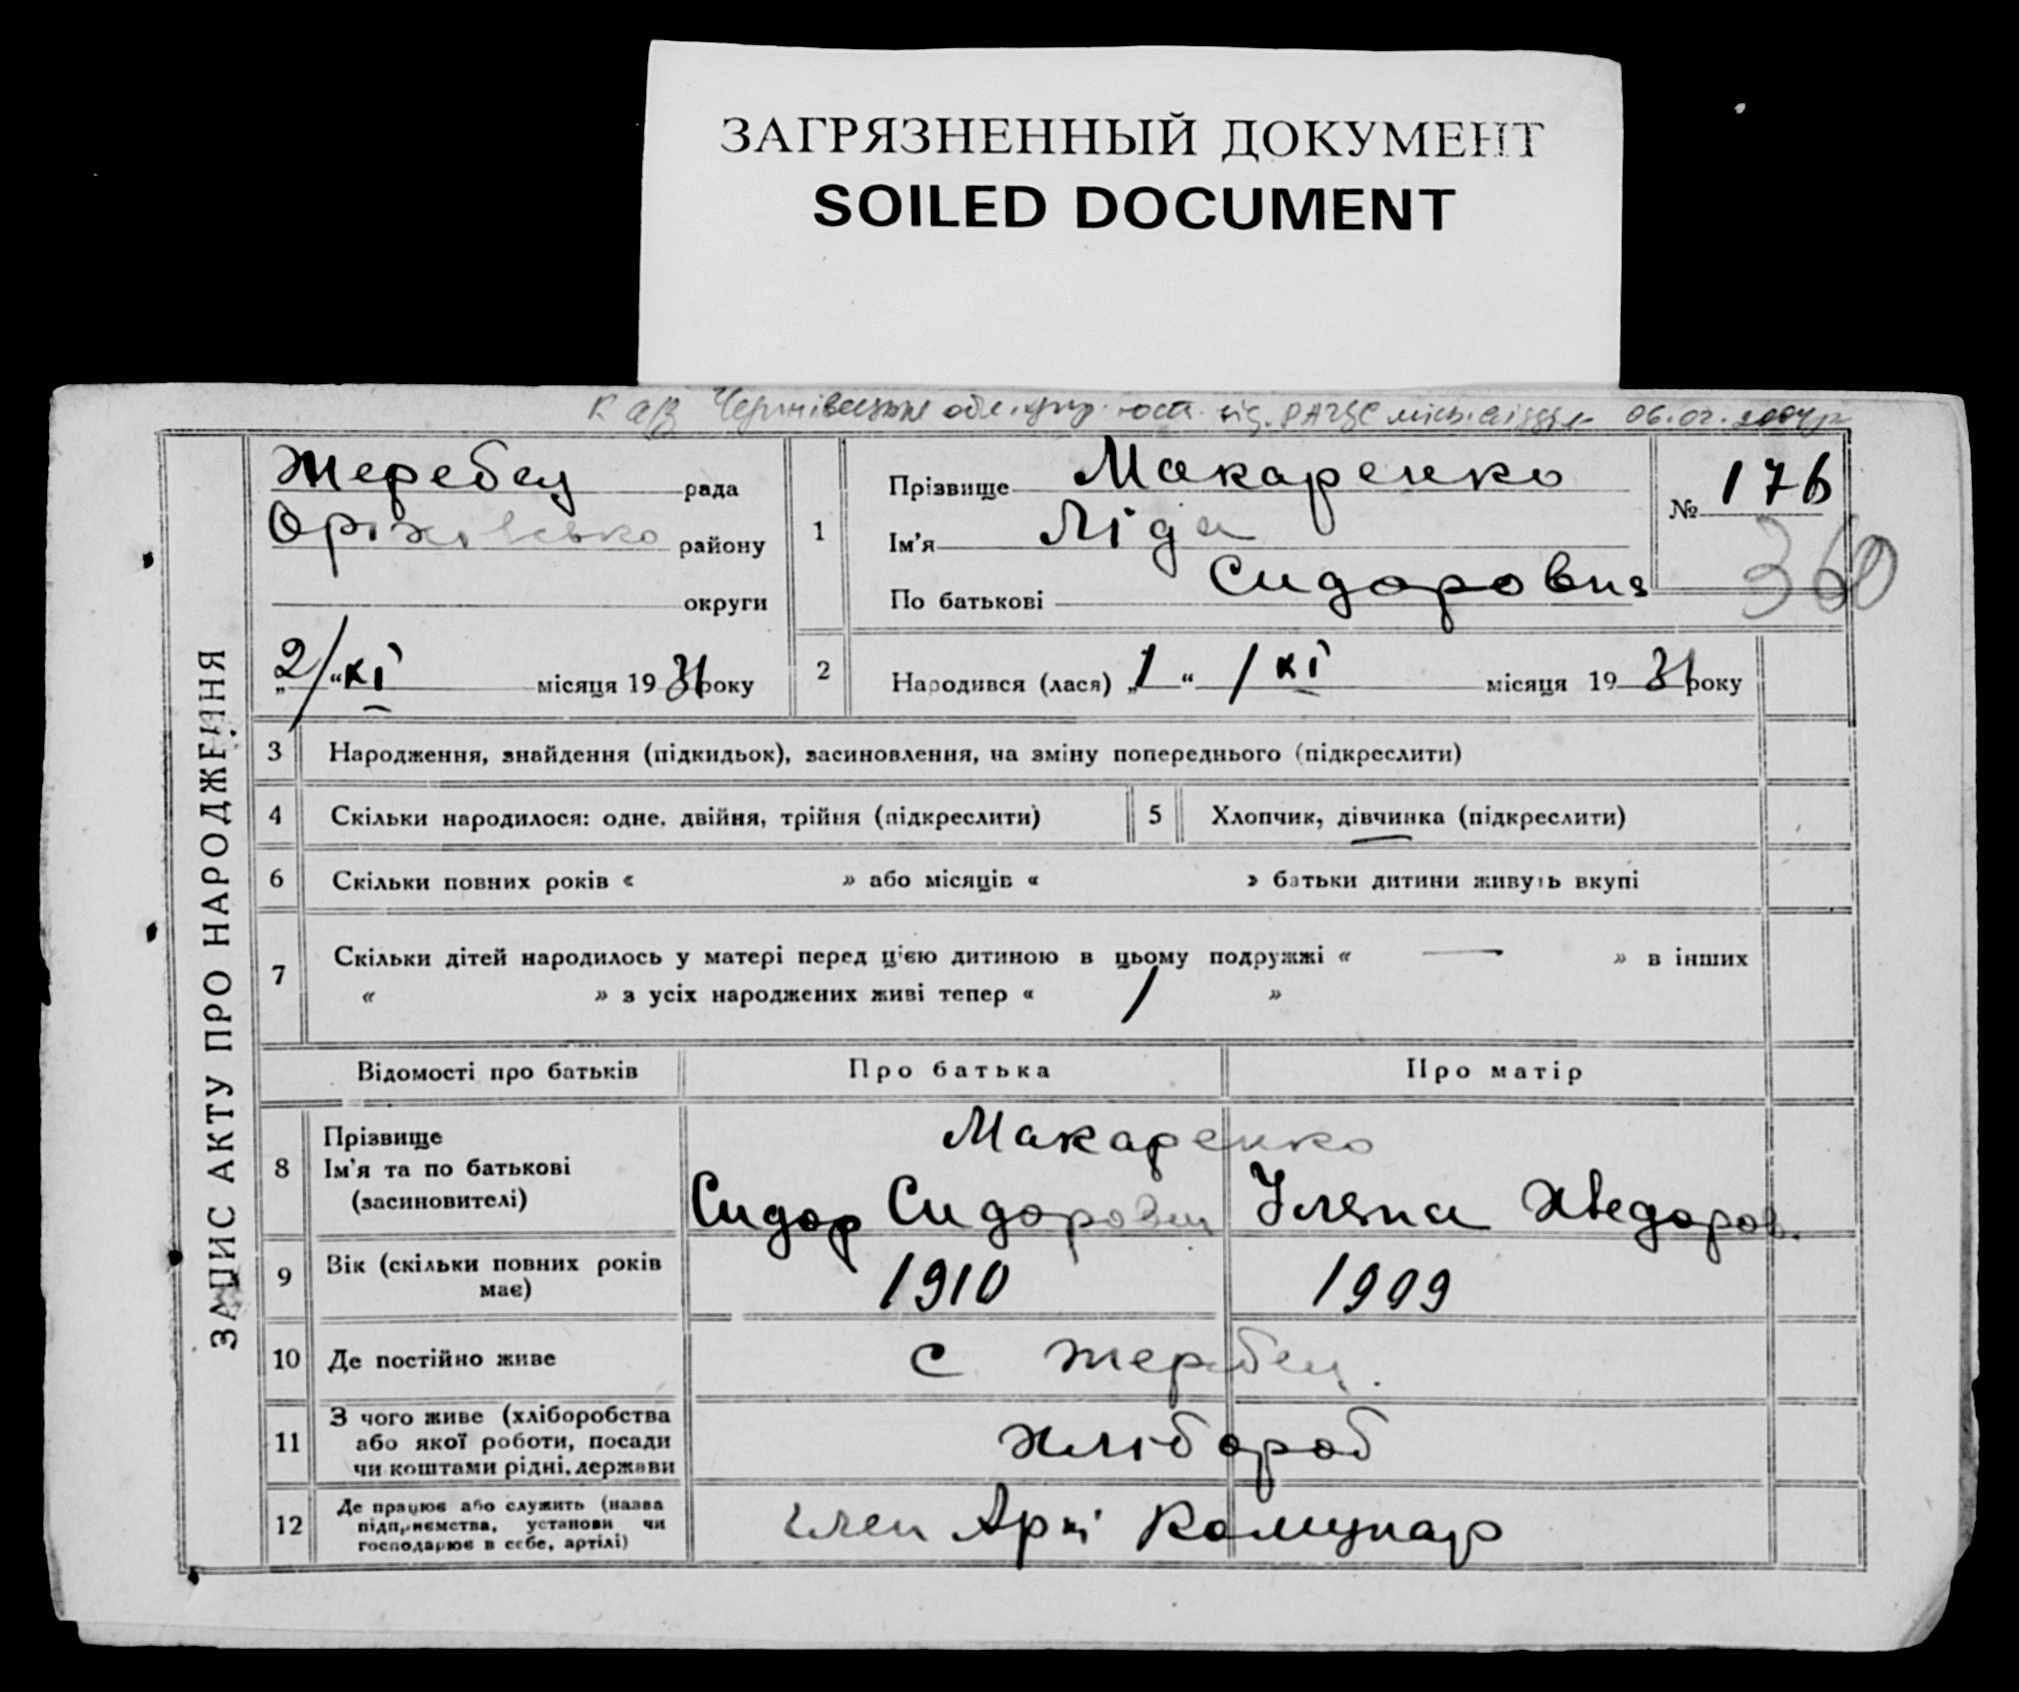 ЗАГРЯЗНЕННЫЙ ДОКУМЕНТ
SOILED DOCUMENT
06.02.2004р
ЗАПИС АКТУ ПРО НАРОДЖЕННЯ
Жеребец рада
Оріхівсько району
округи
„2/“ XI місяця 1931 року
1
Прізвище Макаренко
Ім'я Ліда
По батькові Сидоровна
№ 176
360
2 Народився (лася) „1“ / XI місяця 1931 року
3 Народження, знайдення (підкидьок), засиновлення, на зміну попереднього (підкреслити)
4 Скільки народилося: одне, двійня, трійня (підкреслити) 5 Хлопчик, дівчинка (підкреслити)
6 Скільки повних років « » або місяців « » батьки дитини живуть вкупі
7 Скільки дітей народилось у матері перед цією дитиною в цьому подружжі « — » в інших
« » з усіх народжених живі тепер « 1 »
Відомості про батьків Про батька Про матір
8 Прізвище
Ім'я та по батькові
(засиновителі)
Макаренко
Сидор Сидорович Уляна Хведоров.
9 Вік (скільки повних років
має)
1910 1909
10 Де постійно живе с Жеребец.
11 З чого живе (хліборобства
або якої роботи, посади
чи коштами рідні, держави
хлібороб
12 Де працює або служить (назва
підприємства, установи чи
господарює в себе, артілі)
член Арт Комунар